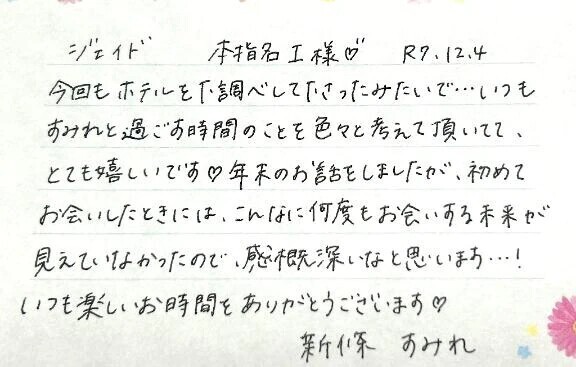 ジェイド 本指名 I様♡ R7.12.4
今回もホテルをお調べして下さったみたいで…いつも
すみれと過ごす時間のことを色々と考えて頂いてて、
とても嬉しいです♡年末のお話をしましたが、初めて
お会いしたときには、こんなに何度もお会いする未来が
見えていなかったので、感慨深いなと思います…!
いつも楽しいお時間をありがとうございます♡
新條 すみれ